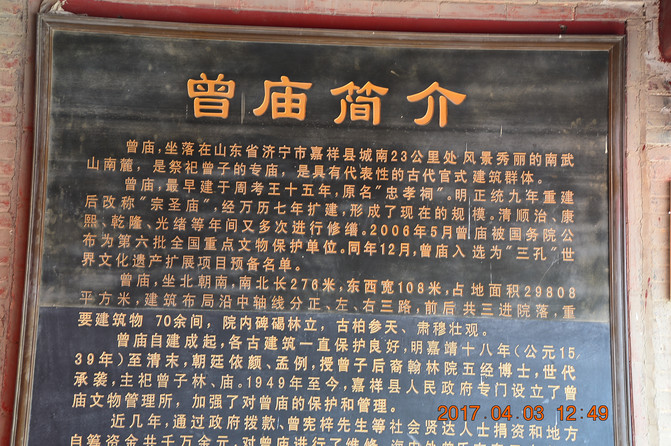 曾庙简介
曾庙，坐落在山东省济宁市嘉祥县城南23公里处风景秀丽的南武
山南麓，是祭祀曾子的专庙，是具有代表性的古代官式建筑群体。
曾庙，最早建于周考王十五年，原名"忠孝祠"。明正统九年重建
后改称"宗圣庙"，经万历七年扩建，形成了现在的规模。清顺治、康
熙、乾隆、光绪等年间又多次进行修缮。2006年5月曾庙被国务院公
布为第六批全国重点文物保护单位。同年12月，曾庙入选为"三孔"世
界文化遗产扩展项目预备名单。
曾庙，坐北朝南，南北长276米，东西宽108米，占地面积29808
平方米，建筑布局沿中轴线分正、左、右三路，前后共三进院落，重
要建筑物 70余间，院内碑碣林立，古柏参天、肃穆壮观。
曾庙自建成起，各古建筑一直保护良好，明嘉靖十八年（公元15
39年）至清末，朝廷依颜、孟例，授曾子后裔翰林院五经博士，世代
承袭，主祀曾子林、庙。1949年至今，嘉祥县人民政府专门设立了曾
庙文物管理所，加强了对曾庙的保护和管理。
近几年，通过政府拨款、曾宪梓先生等社会贤达人士捐资和地方
自筹资金共千万余元，对曾庙进行了维修，海内外
2017.04.03 12:49